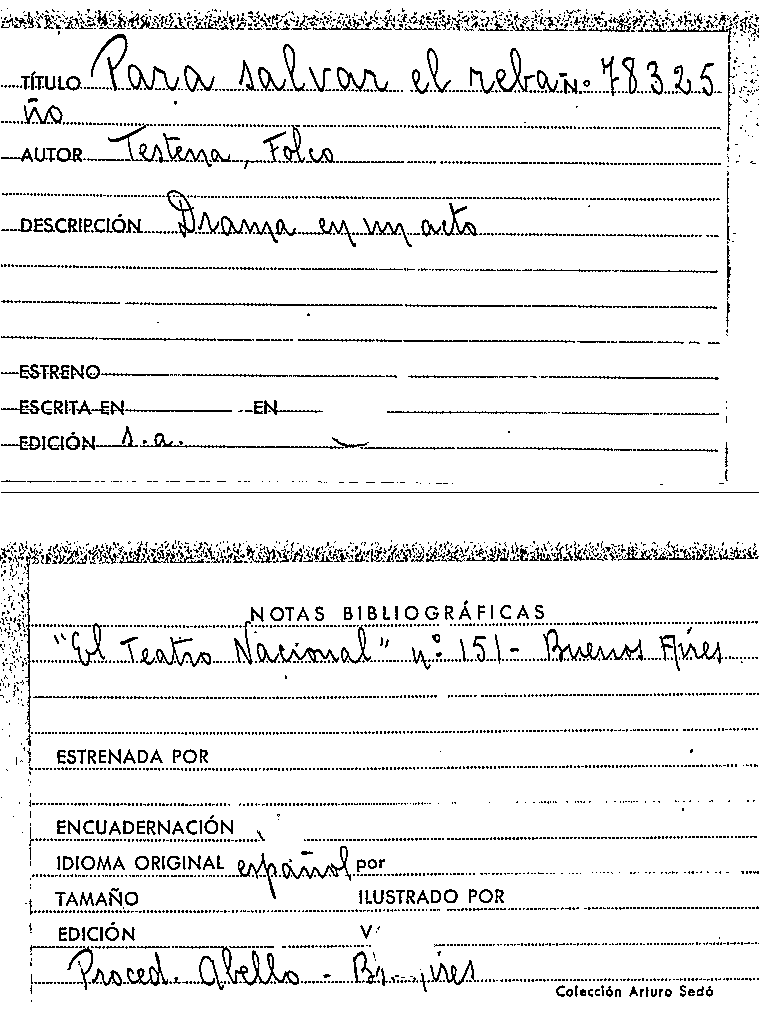 TÍTULO Para salvar el reba N.º 78325
ño
AUTOR Testena, Folco
DESCRIPCIÓN Drama en un acto
ESTRENO
ESCRITA EN EN
EDICIÓN s.a.
NOTAS BIBLIOGRÁFICAS
"El Teatro Nacional" nº 151 - Buenos Aires
ESTRENADA POR
ENCUADERNACIÓN
IDIOMA ORIGINAL español por
TAMAÑO ILUSTRADO POR
EDICIÓN V
Proced. Abello -
Colección Arturo Sedó